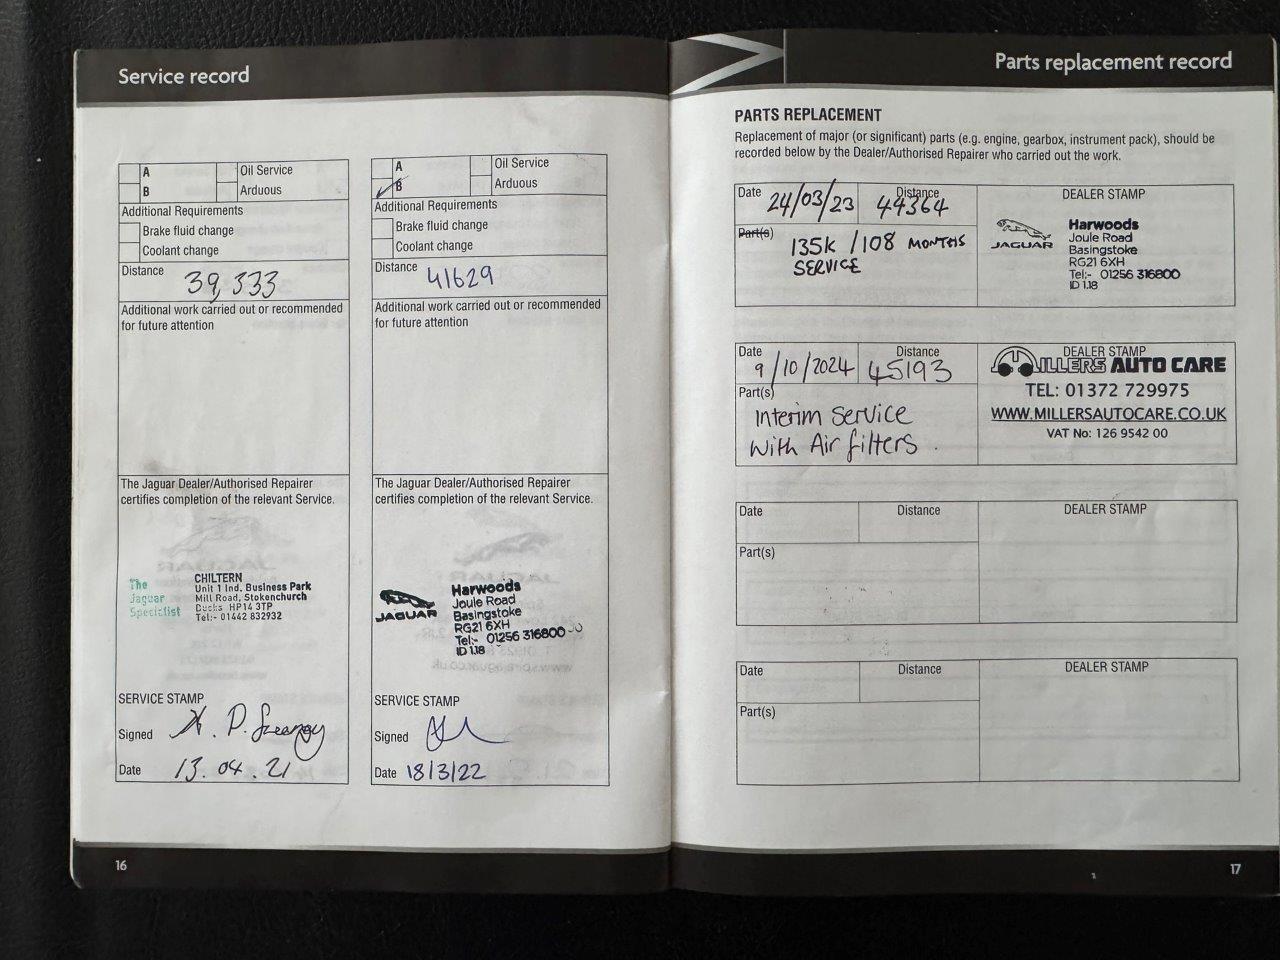 Service record
A
Oil Service
B
Arduous
Additional Requirements
Brake fluid change
Coolant change
Distance
39,333
Additional work carried out or recommended
for future attention
The Jaguar Dealer/Authorised Repairer
certifies completion of the relevant Service.
The
Jaguar
Specialist
CHILTERN
Unit 1 Ind. Business Park
Mill Road, Stokenchurch
Bucks HP14 3TP
Tel:- 01442 832932
SERVICE STAMP
Signed
Date 13.04.21
A
Oil Service
B
Arduous
Additional Requirements
Brake fluid change
Coolant change
Distance
41629
Additional work carried out or recommended
for future attention
The Jaguar Dealer/Authorised Repairer
certifies completion of the relevant Service.
JAGUAR
Harwoods
Joule Road
Basingstoke
RG21 6XH
Tel:- 01256 316800
ID 1.18
SERVICE STAMP
Signed
Date 18/3/22
16
Parts replacement record
PARTS REPLACEMENT
Replacement of major (or significant) parts (e.g. engine, gearbox, instrument pack), should be
recorded below by the Dealer/Authorised Repairer who carried out the work.
Date 24/03/23
Distance
44364
Part(s)
135K / 108 MONTHS
SERVICE
DEALER STAMP
JAGUAR
Harwoods
Joule Road
Basingstoke
RG21 6XH
Tel:- 01256 316800
ID 1.18
Date 9/10/2024
Distance
45193
Part(s)
Interim Service
With Air filters.
DEALER STAMP
MILLERS AUTO CARE
TEL: 01372 729975
WWW.MILLERSAUTOCARE.CO.UK
VAT No: 126 9542 00
Date
Distance
DEALER STAMP
Part(s)
Date
Distance
DEALER STAMP
Part(s)
17